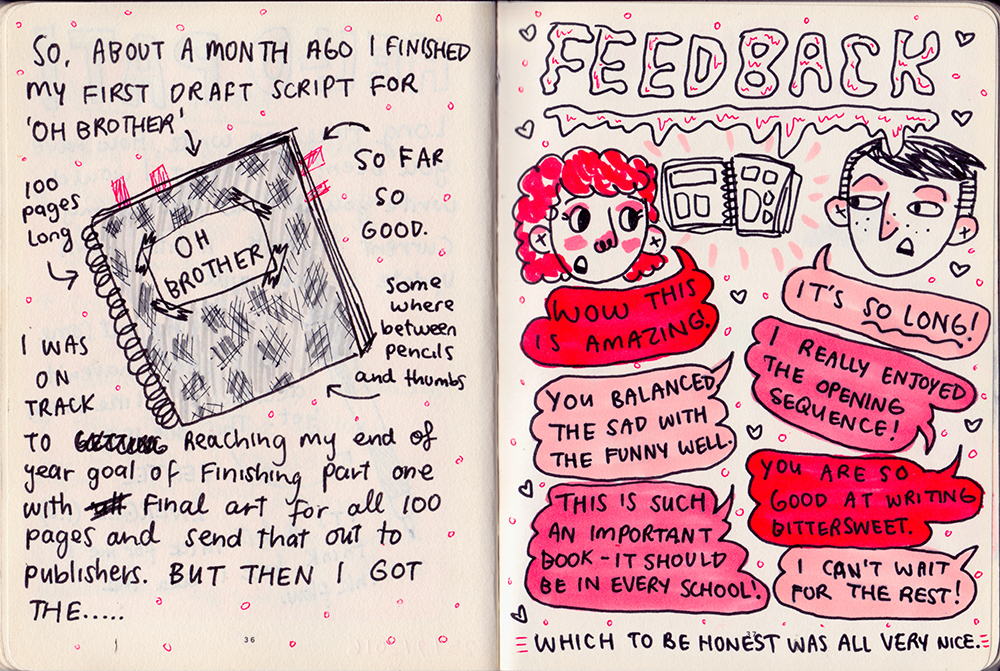 SO, ABOUT A MONTH AGO I FINISHED
MY FIRST DRAFT SCRIPT FOR
'OH BROTHER'
100
pages
long
OH
BROTHER
SO FAR
SO
GOOD.
Some
where
between
pencils
and thumbs
I WAS
ON
TRACK
TO Reaching my end of
year goal of Finishing part one
with Final art for all 100
pages and send that out to
publishers. BUT THEN I GOT
THE.....
36
FEEDBACK
WOW THIS
IS AMAZING!
IT'S SO LONG!
I REALLY ENJOYED
THE OPENING
SEQUENCE!
YOU BALANCED
THE SAD WITH
THE FUNNY WELL.
YOU ARE SO
GOOD AT WRITING
BITTERSWEET.
THIS IS SUCH
AN IMPORTANT
BOOK - IT SHOULD
BE IN EVERY SCHOOL!
I CAN'T WAIT
FOR THE REST!
WHICH TO BE HONEST WAS ALL VERY NICE.
37